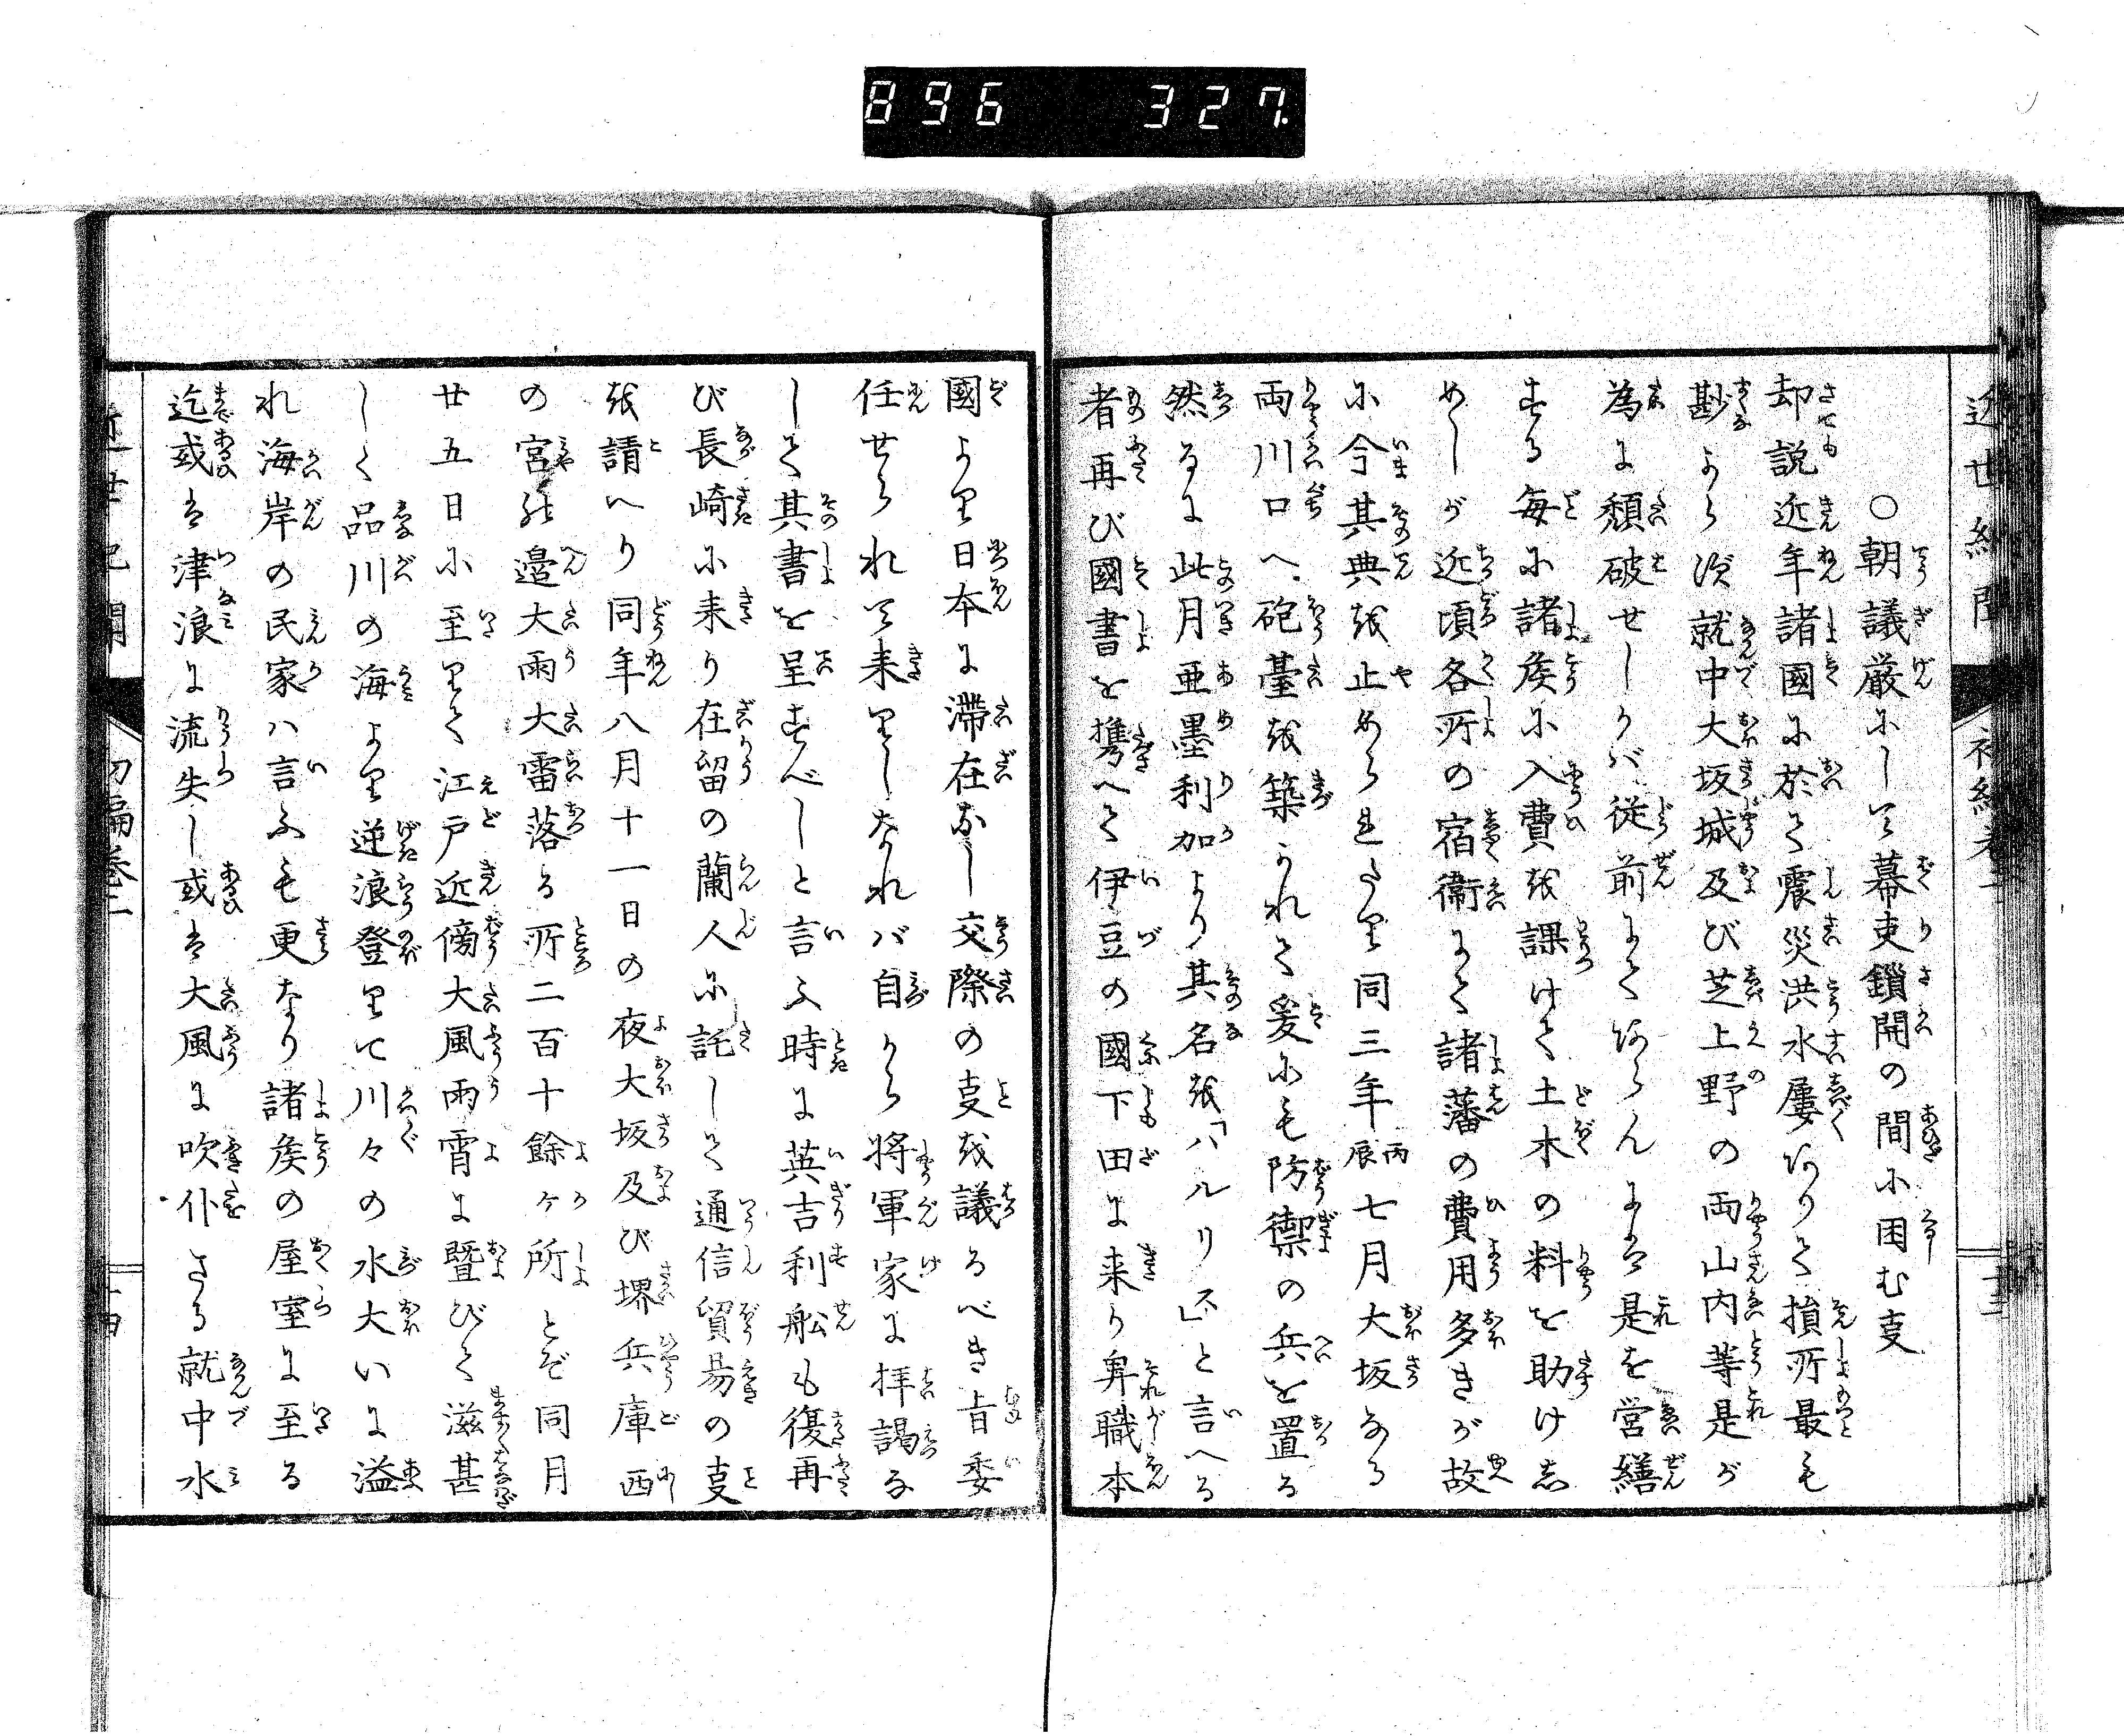 896 327.
近世紀聞 初編巻二 十三
○朝議厳にして幕吏鎖開の間に困む支
却説近年諸國に於て震災洪水屡ありて損所最も
尠からず就中大坂城及び芝上野の両山内等是が
為に頽破せしかば従前にてあらんには是を営繕
する毎に諸矦に入費を課けて土木の料を助けし
めしが近頃各所の宿衞にて諸藩の費用多きが故
に今其典を止められたり同三年丙辰七月大坂なる
両川口へ砲臺を築かれて爰にも防禦の兵を置る
然るに此月亜墨利加より其名を「ハルリス」と言へる
者再び國書を携へて伊豆の國下田に来り舁職本
國より日本に滞在なし交際の支を議るべき旨委
任せられて来りしなれバ自から将軍家に拝謁な
して其書を呈すべしと言ふ時に英吉利舩も復再
び長崎に来り在留の蘭人に託して通信貿易の支
を請へり同年八月十一日の夜大坂及び堺兵庫西
の宮の邉大雨大雷落る所二百十餘ヶ所とぞ同月
廿五日に至りて江戸近傍大風雨宵に暨びて滋甚
しく品川の海より逆浪登りて川々の水大いに溢
れ海岸の民家ハ言ふも更なり諸矦の屋室に至る
迄或は津浪に流失し或は大風に吹仆さる就中水
近世紀聞 初編巻二 十四